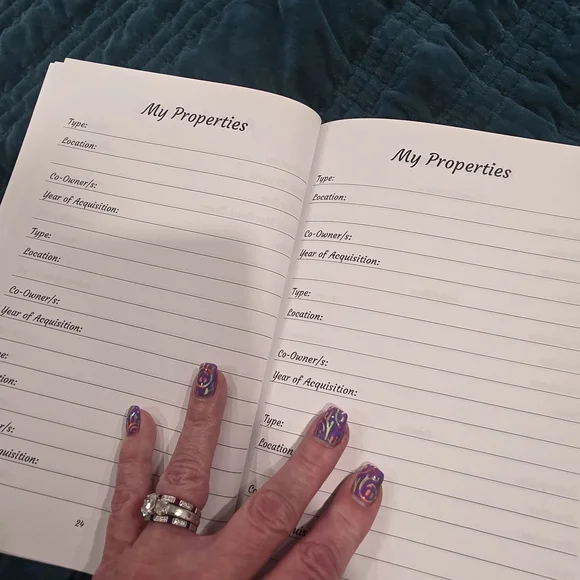 My Properties
Type:
Location:
Co-Owner/s:
Year of Acquisition:
Type:
Location:
Co-Owner/s:
Year of Acquisition:
24
My Properties
Type:
Location:
Co-Owner/s:
Year of Acquisition:
Type:
Location:
Co-Owner/s:
Year of Acquisition:
Type:
Location